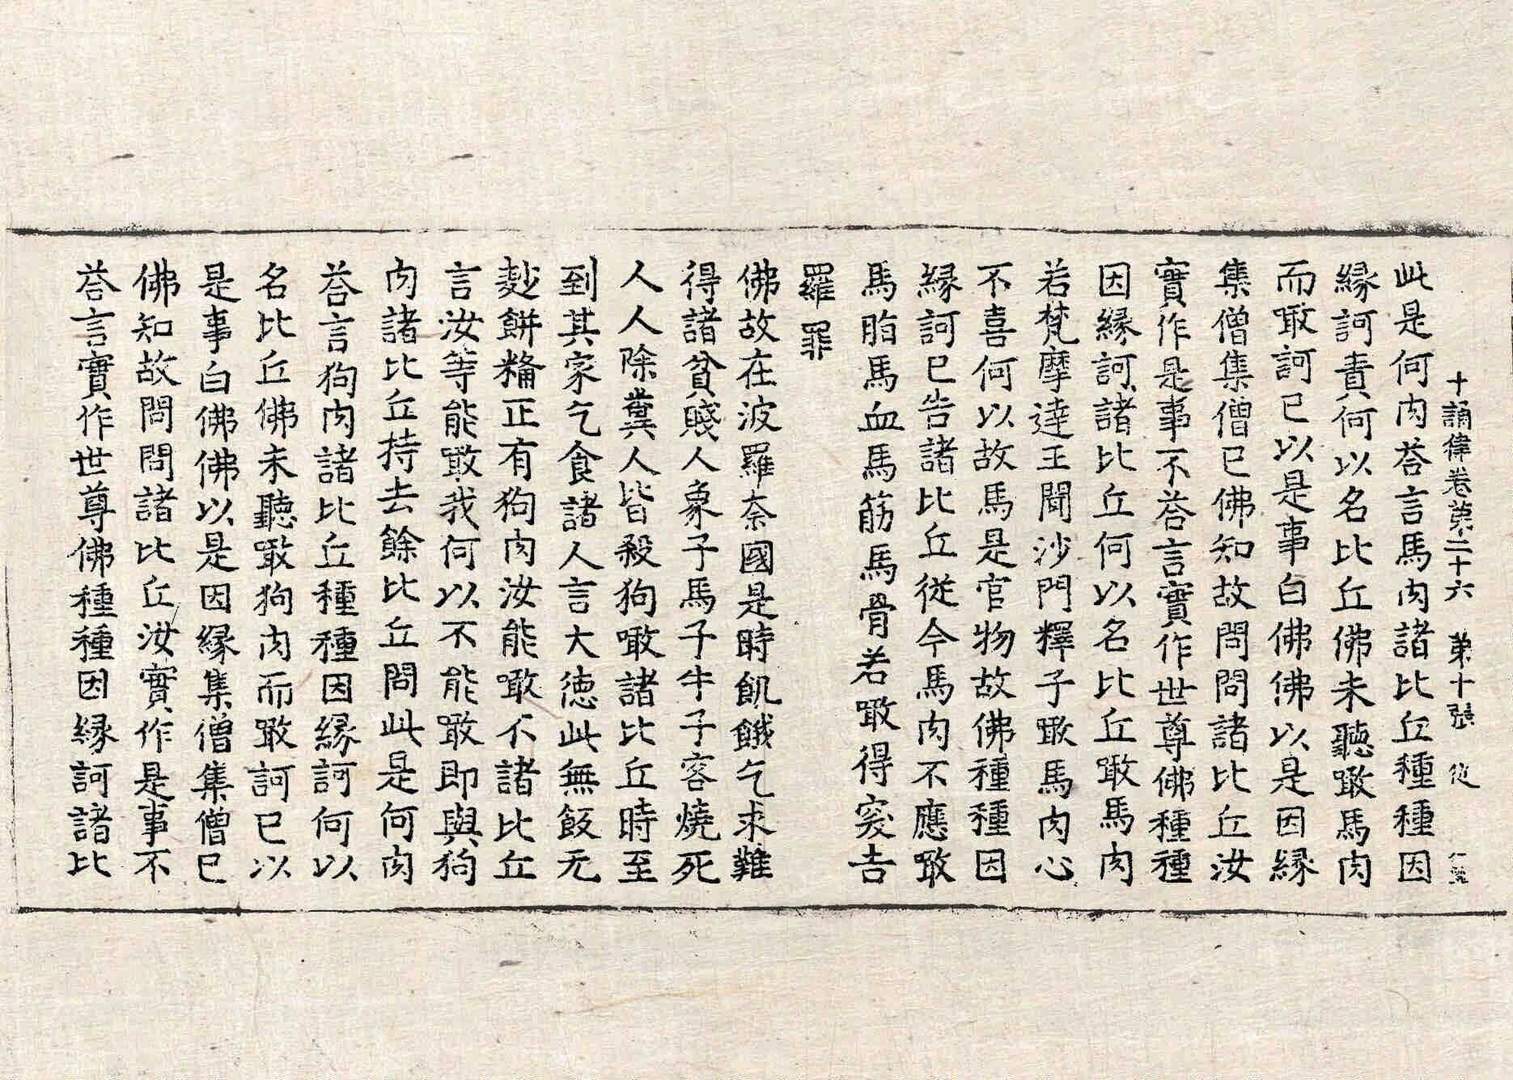 十誦律卷第二十六 第十張 從
此是何肉荅言馬肉諸比丘種種因
縁訶責何以名比丘佛未聽噉馬肉
而噉訶已以是事白佛佛以是因縁
集僧集僧已佛知故問問諸比丘汝
實作是事不荅言實作世尊佛種種
因縁訶諸比丘何以名比丘噉馬肉
若梵摩達王聞沙門釋子噉馬肉心
不喜何以故馬是官物故佛種種因
縁訶已告諸比丘從今馬肉不應噉
馬脂馬血馬筋馬骨若噉得突吉
羅罪
佛故在波羅奈國是時飢餓乞求難
得諸貧賤人象子馬子牛子客燒死
人人除糞人皆殺狗噉諸比丘時至
到其家乞食諸人言大徳此無飯无
麨餅糒正有狗肉汝能噉不諸比丘
言汝等能噉我何以不能噉即與狗
肉諸比丘持去餘比丘問此是何肉
荅言狗肉諸比丘種種因縁訶何以
名比丘佛未聽噉狗肉而噉訶已以
是事白佛佛以是因縁集僧集僧已
佛知故問問諸比丘汝實作是事不
荅言實作世尊佛種種因縁訶諸比